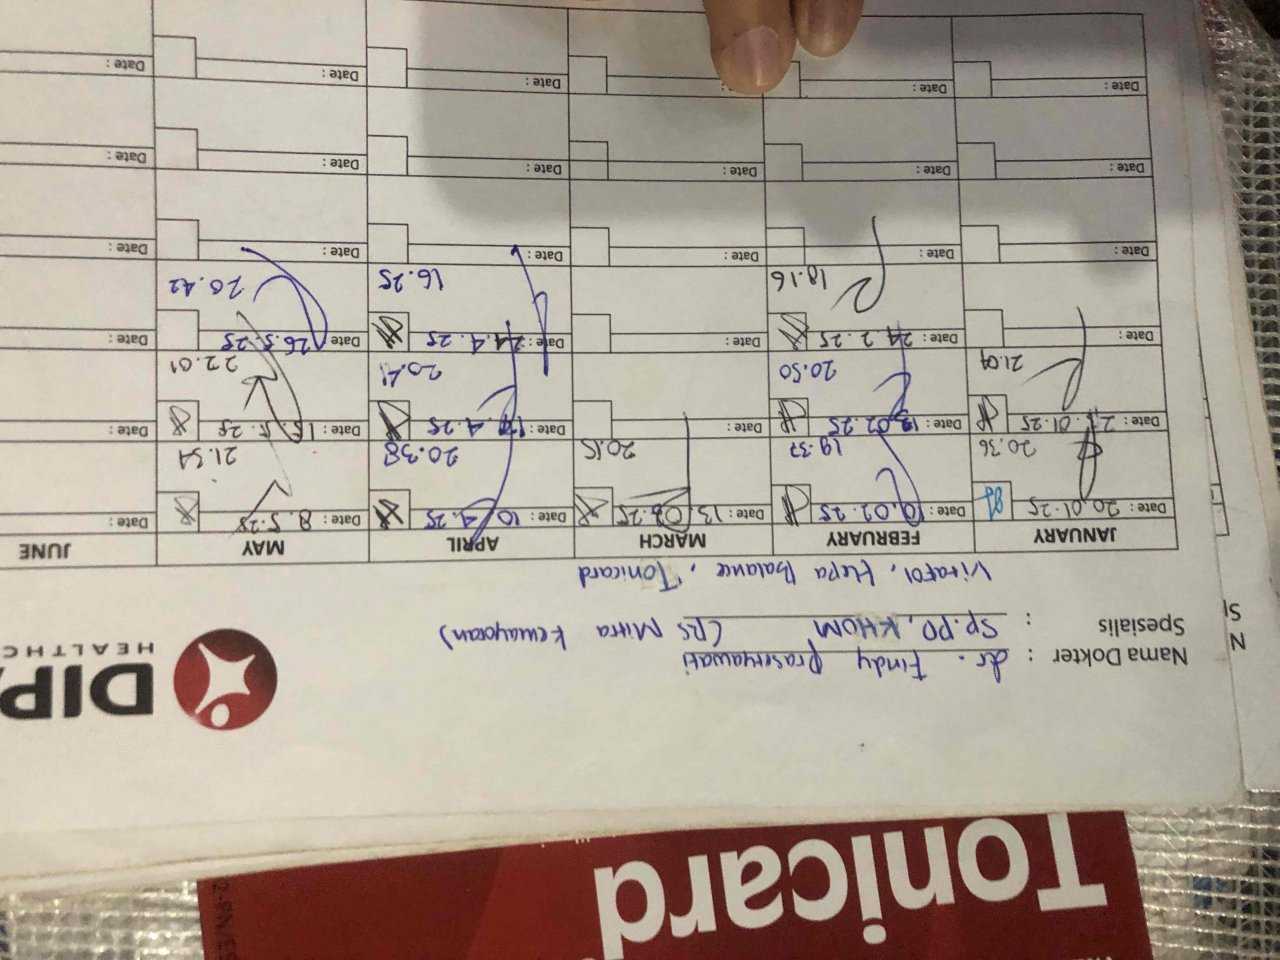 Tonicard
DIP
HEALTHC
Nama Dokter : dr. Findy Prasetyawati
Spesialis : Sp.PD, KHOM (RS Mitra Kemayoran)
Hepa Balance, Tonicard
JANUARY FEBRUARY MARCH APRIL MAY JUNE
Date: 20.01.25 Date: 10.02.25 Date: 13.03.25 Date: 10.4.25 Date: 8.5.25 Date:
20.36 19.37 20.15 20.38 21.54
Date: .01.25 Date: 13.02.25 Date: Date: .4.25 Date: 15.5.25 Date:
21.09 20.50 20.41 22.01
Date: Date: 24.2.25 Date: Date: 24.4.25 Date: 26.5.25 Date:
18.16 16.25 20.42
Date: Date: Date: Date: Date: Date:
Date: Date: Date: Date: Date: Date:
Date: Date: Date: Date: Date: